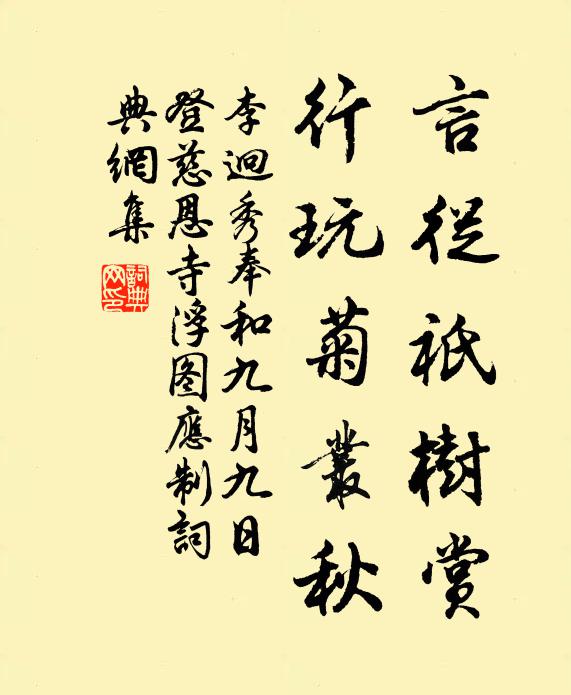 言從祇樹賞
行玩菊叢秋
李迥秀奉和九月九日
登慈恩寺浮图應制詞
典網集
詞典网印